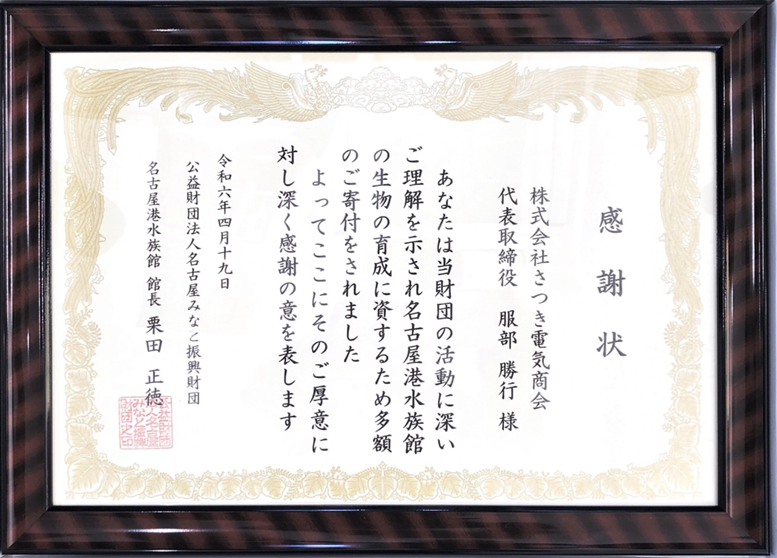 感謝状
株式会社さつき電気商会
代表取締役 服部 勝行 様
あなたは当財団の活動に深い
ご理解を示され名古屋港水族館
の生物の育成に資するため多額
のご寄付をされました
よってここにそのご厚意に
対し深く感謝の意を表します
令和六年四月十九日
公益財団法人名古屋みなと振興財団
名古屋港水族館 館長 栗田 正徳